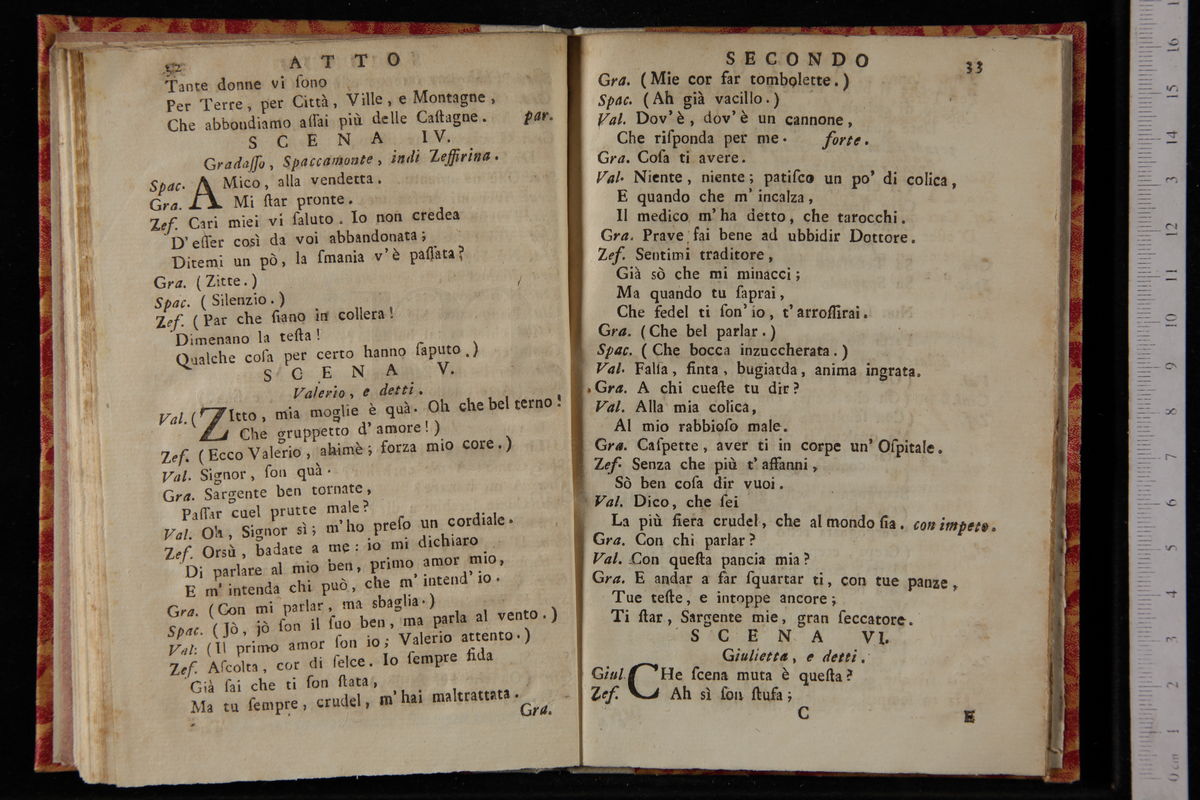 32 ATTO
Tante donne vi ſono
Per Terre, per Città, Ville, e Montagne,
Che abbondiamo aſſai più delle Caſtagne. par.
SCENA IV.
Gradaſſo, Spaccamonte, indi Zeffirina.
Spac. AMico, alla vendetta.
Gra. Mi ſtar pronte.
Zef. Cari miei vi ſaluto. Io non credea
D'eſſer così da voi abbandonata;
Ditemi un pò, la ſmania v'è paſſata?
Gra. (Zitte.)
Spac. (Silenzio.)
Zef. (Par che ſiano in collera!
Dimenano la teſta!
Qualche coſa per certo hanno ſaputo.)
SCENA V.
Valerio, e detti.
Val. (ZItto, mia moglie è quà. Oh che bel terno!
Che gruppetto d'amore!)
Zef. (Ecco Valerio, ahimè; forza mio core.)
Val. Signor, ſon quà.
Gra. Sargente ben tornate,
Paſſar cuel prutte male?
Val. Oh, Signor sì; m'ho preſo un cordiale.
Zef. Orsù, badate a me: io mi dichiaro
Di parlare al mio ben, primo amor mio,
E m'intenda chi può, che m'intend'io.
Gra. (Con mi parlar, ma sbaglia.)
Spac. (Jò, jò ſon il ſuo ben, ma parla al vento.)
Val. (Il primo amor ſon io; Valerio attento.)
Zef. Aſcolta, cor di ſelce. Io ſempre fida
Già ſai che ti ſon ſtata,
Ma tu ſempre, crudel, m'hai maltrattata.
Gra.
SECONDO 33
Gra. (Mie cor far tombolette.)
Spac. (Ah già vacillo.)
Val. Dov'è, dov'è un cannone,
Che riſponda per me. forte.
Gra. Coſa ti avere.
Val. Niente, niente; patiſco un po' di colica,
E quando che m'incalza,
Il medico m'ha detto, che tarocchi.
Gra. Prave fai bene ad ubbidir Dottore.
Zef. Sentimi traditore,
Già sò che mi minacci;
Ma quando tu ſaprai,
Che fedel ti ſon'io, t'arroſſirai.
Gra. (Che bel parlar.)
Spac. (Che bocca inzuccherata.)
Val. Falſa, finta, bugiarda, anima ingrata.
Gra. A chi cueſte tu dir?
Val. Alla mia colica,
Al mio rabbioſo male.
Gra. Caſpette, aver ti in corpe un' Oſpitale.
Zef. Senza che più t'affanni,
Sò ben coſa dir vuoi.
Val. Dico, che ſei
La più fiera crudel, che al mondo ſia. con impeto.
Gra. Con chi parlar?
Val. Con queſta pancia mia?
Gra. E andar a far ſquartar ti, con tue panze,
Tue teſte, e intoppe ancore;
Ti ſtar, Sargente mie, gran ſeccatore.
SCENA VI.
Giulietta, e detti.
Giul. CHe ſcena muta è queſta?
Zef. Ah sì ſon ſtufa;
C E